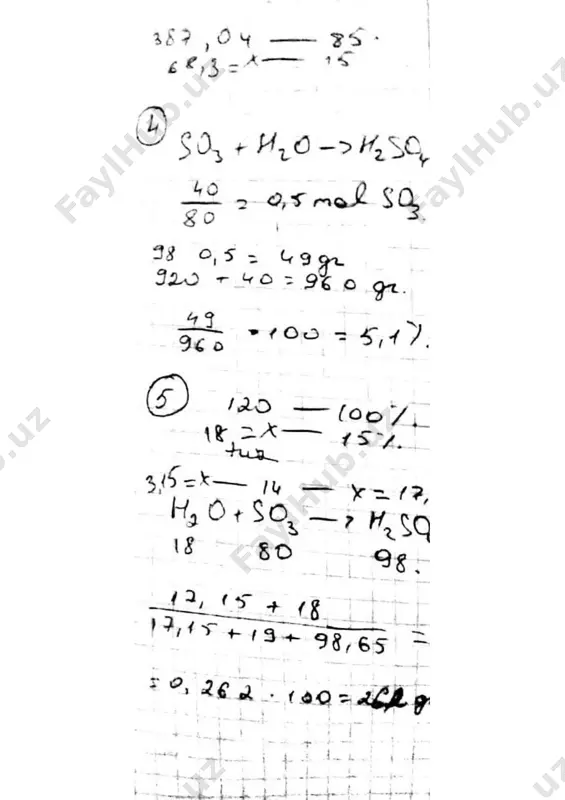 387,04 — 85.
68,3 = x — 15
4
SO3 + H2O -> H2SO4
40/80 = 0,5 mol SO3.
98 0,5 = 49 gr
920 + 40 = 960 gr.
49/960 • 100 = 5,1%.
5
120 — 100%.
18 = x — 15%.
tuz
3,15 = x — 14 — x = 17,
H2O + SO3 —> H2SO
18 80 98.
17,15 + 18
17,15 + 19 + 98,65 =
= 0,262 • 100 =
FaylHub.uz
FaylHub.uz
FaylHub.uz
FaylHub.uz